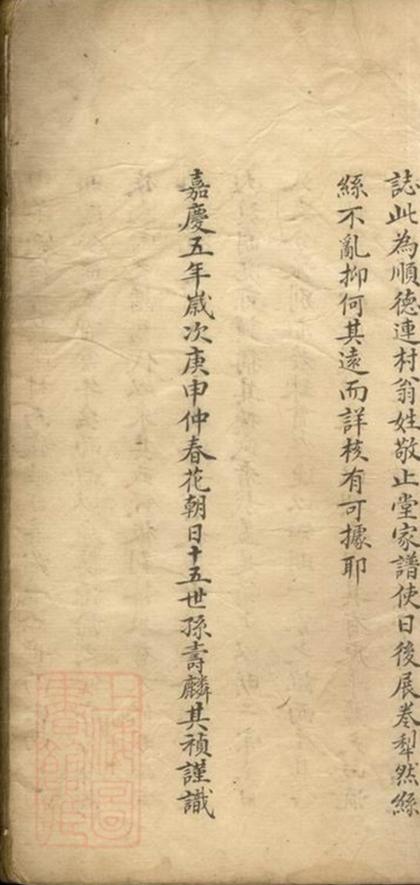 誌此為順德連村翁姓敬止堂家譜使日後展卷犁然絲
絲不亂抑何其遠而詳核有可據耶
嘉慶五年歲次庚申仲春花朝日十五世孫壽麟其禎謹識